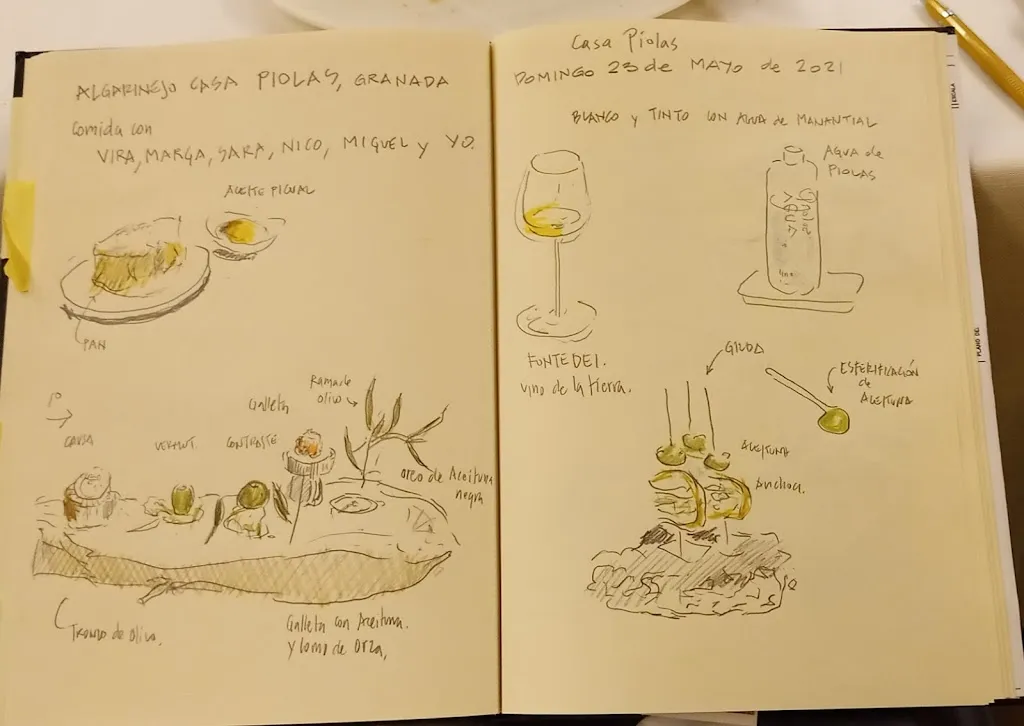 ALGARINEJO CASA PIOLAS, GRANADA
Comida con
VIRA, MARGA, SARA, NICO, MIGUEL y YO.
ACEITE PICUAL
PAN
1º
CAUSA
VERMUT.
CONTRASTE
Galleta
Rama de
olivo
oreo de Aceituna
negra
Tronco de olivo.
Galleta con Aceituna.
y lomo de orza,
Casa Piolas
DOMINGO 23 de MAYO de 2021
BLANCO y TINTO CON AGUA de MANANTIAL
AGUA de
PIOLAS
Piolas
AGUA
FONTEDEI.
vino de la tierra.
GILDA
ESFERIFICACIÓN
de
ACEITUNA
ACEITUNA
Anchoa.
ESCALA
PLANO DE: